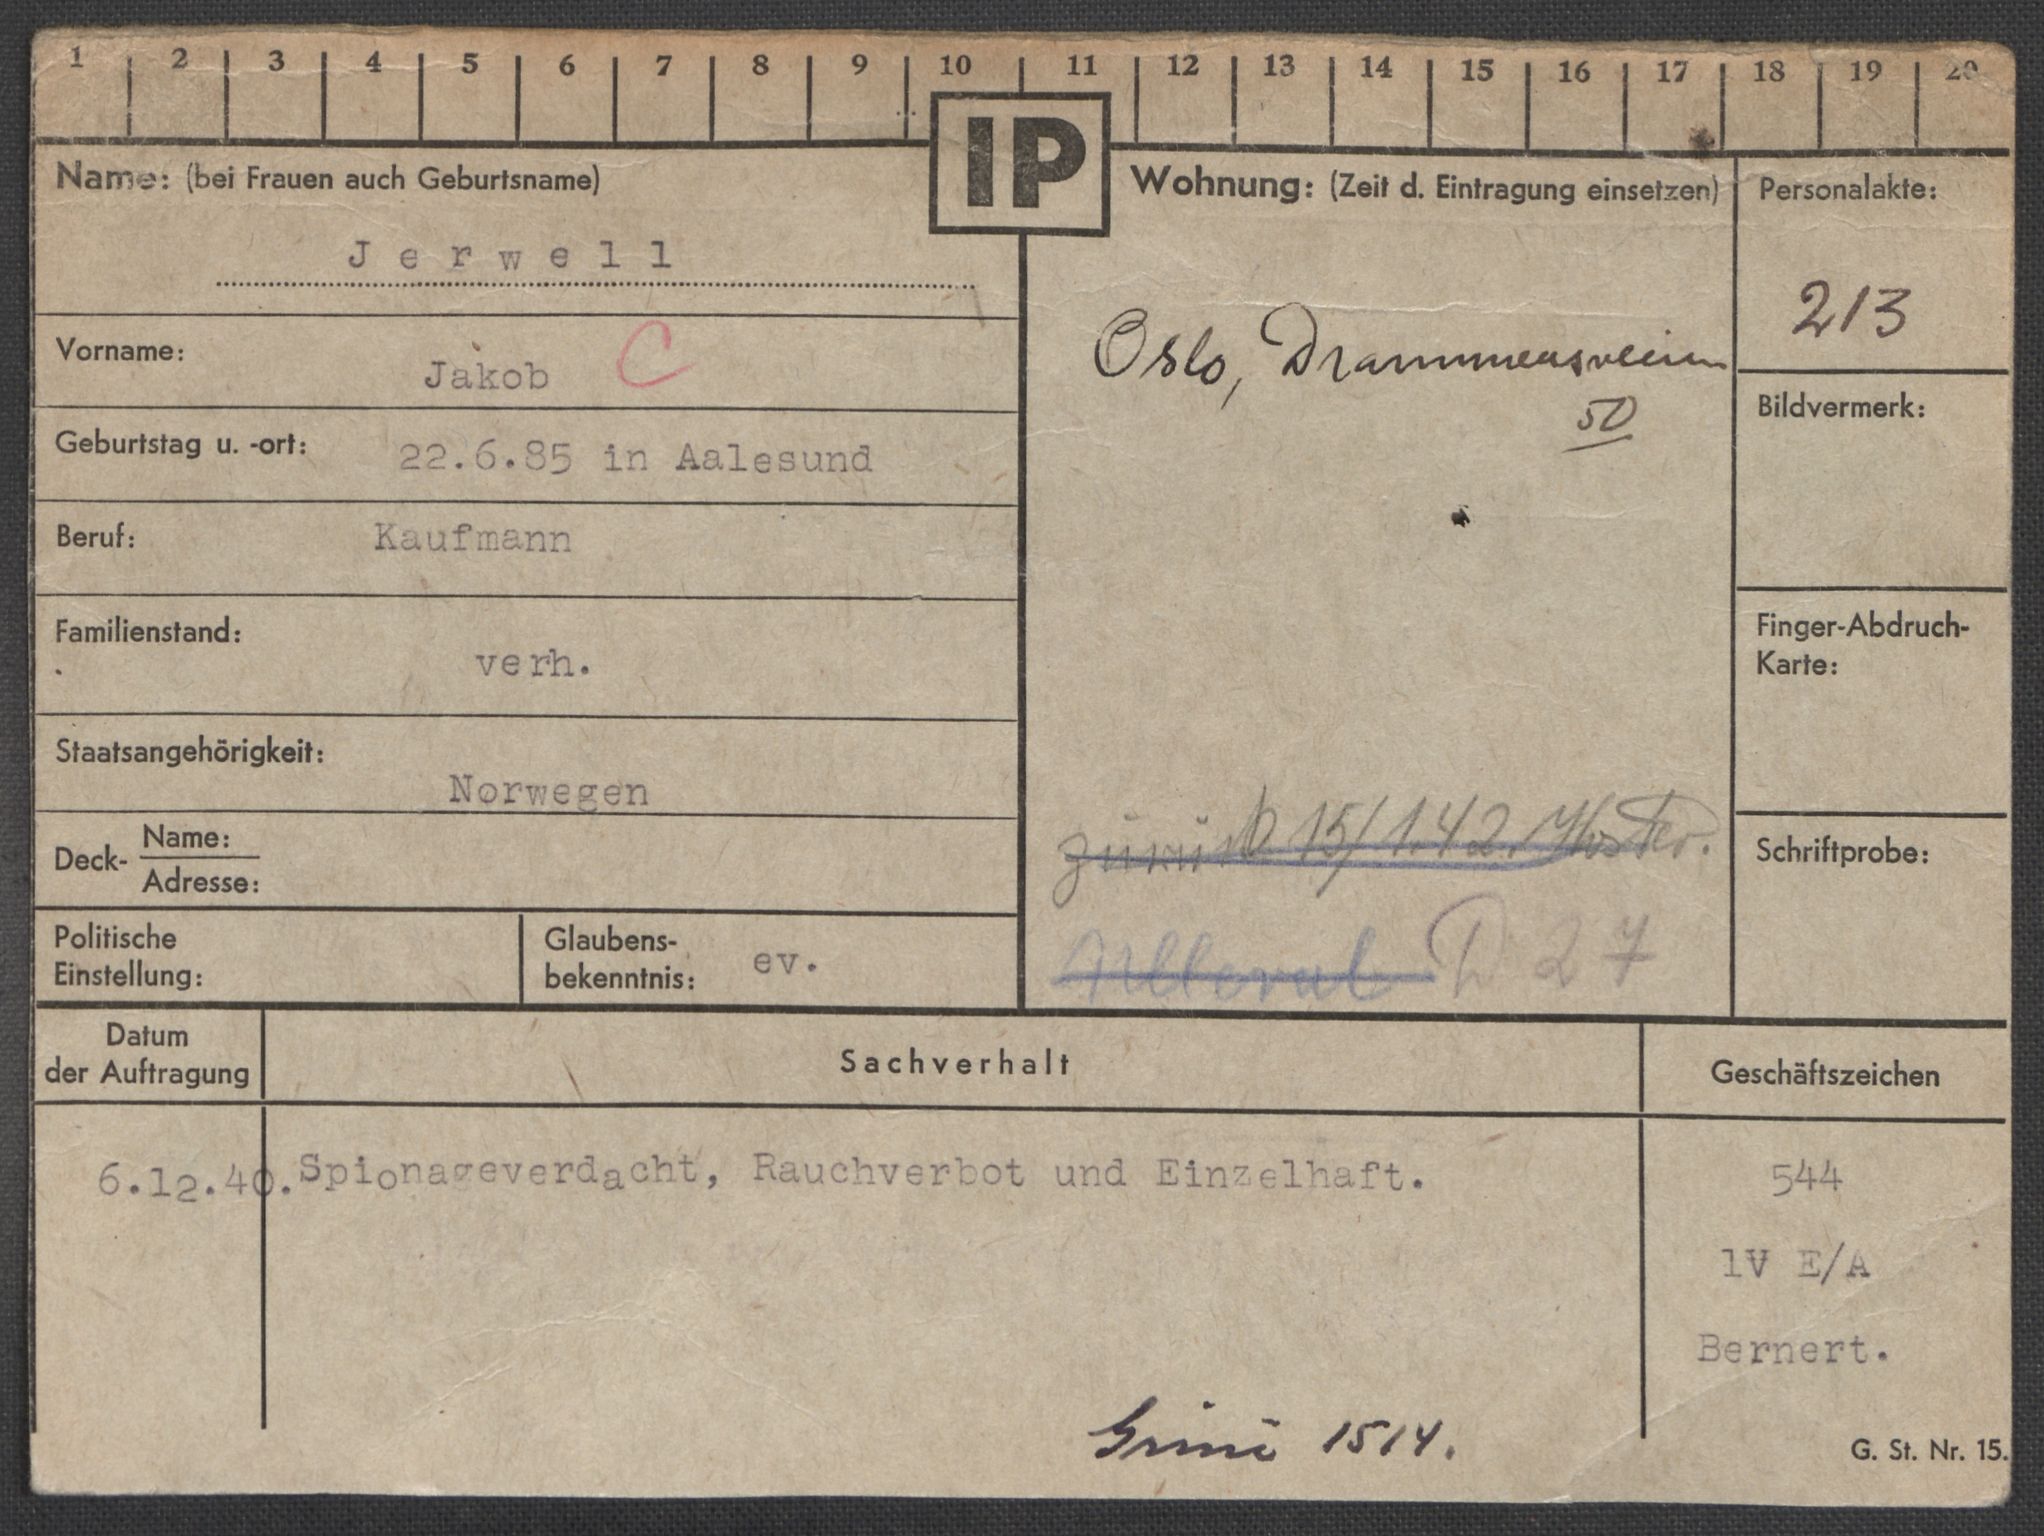 1 2 3 4 5 6 7 8 9 10 11 12 13 14 15 16 17 18 19 20
IP
Name: (bei Frauen auch Geburtsname)
Jerwell
Vorname:
Jakob C
Geburtstag u. -ort: 22.6.85 in Aalesund
Beruf: Kaufmann
Familienstand:
verh.
Staatsangehörigkeit:
Norwegen
Deck- Name:
Adresse:
Politische
Einstellung:
Glaubens-
bekenntnis: ev.
Wohnung: (Zeit d. Eintragung einsetzen)
Oslo, Drammensveien
50
zurück 15/1.42.
Ulleval D 27
Personalakte:
213
Bildvermerk:
Finger-Abdruch-
Karte:
Schriftprobe:
Datum
der Auftragung
Sachverhalt
Geschäftszeichen
6.12.40. Spionageverdacht, Rauchverbot und Einzelhaft. 544
1V E/A
Bernert.
Grini 1514.
G. St. Nr. 15.